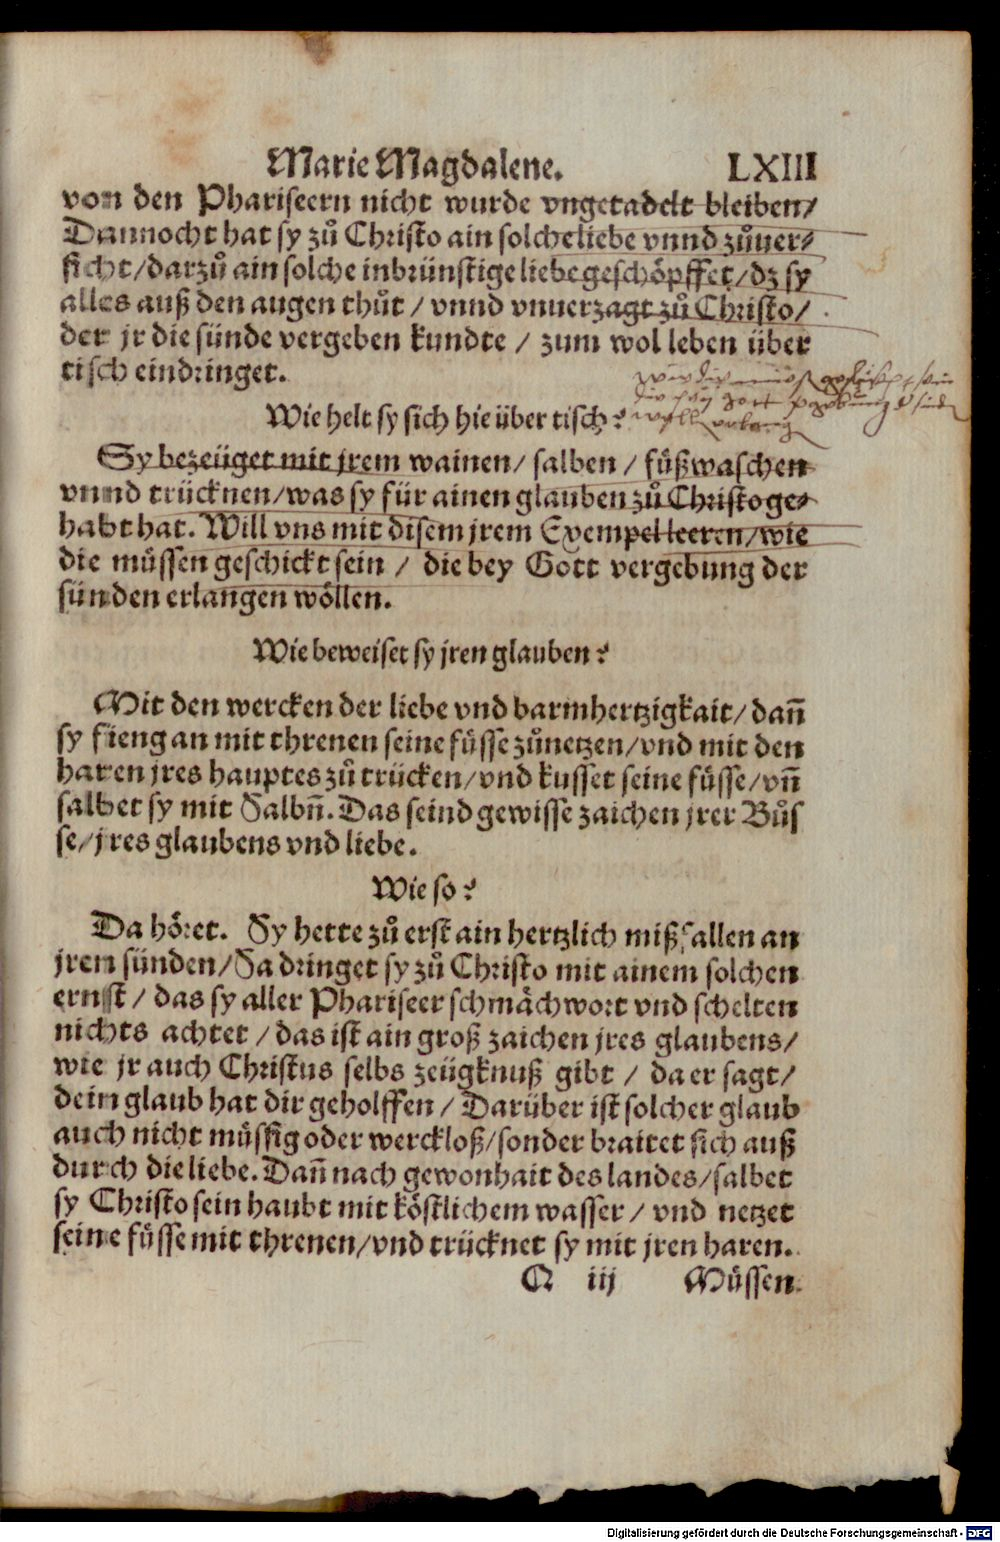 Marie Magdalene. LXIII
von den Phariseern nicht wurde vngetadelt bleiben/
Dannocht hat sy zů Christo ain solche liebe vnnd zůuer⸗
sicht/darzů ain solche inbrünstige liebe geschöpffet/dz sy
alles auß den augen thůt / vnnd vnuerzagt zů Christo/
der jr die sünde vergeben kundte / zum wol leben über
tisch eindringet.
Wie helt sy sich hie über tisch?
Sy bezeüget mit jrem wainen/ salben / füßwaschen
vnnd trücknen/was sy für ainen glauben zů Christo ge⸗
habt hat. Will vns mit disem jrem Exempel leeren/wie
die müssen geschickt sein / die bey Gott vergebung der
sünden erlangen wöllen.
Wie beweiset sy jren glauben?
Mit den wercken der liebe vnd barmhertzigkait/dañ
sy fieng an mit threnen seine füsse zůnetzen/vnd mit den
haren jres hauptes zů trücken/vnd kusset seine füsse/vñ
salbet sy mit Salbñ. Das seind gewisse zaichen jrer Bůs
se/jres glaubens vnd liebe.
Wie so?
Da höret. Sy hette zů erst ain hertzlich mißfallen an
jren sünden/Sa dringet sy zů Christo mit ainem solchen
ernst / das sy aller Phariseer schmächwort vnd schelten
nichts achtet / das ist ain groß zaichen jres glaubens/
wie jr auch Christus selbs zeügknuß gibt / da er sagt/
dein glaub hat dir geholffen / Darüber ist solcher glaub
auch nicht müssig oder werckloß/sonder braitet sich auß
durch die liebe. Dañ nach gewonhait des landes/salbet
sy Christo sein haubt mit köstlichem wasser / vnd netzet
seine füsse mit threnen/vnd trücknet sy mit jren haren.
Q iij Müssen
Digitalisierung gefördert durch die Deutsche Forschungsgemeinschaft - DFG